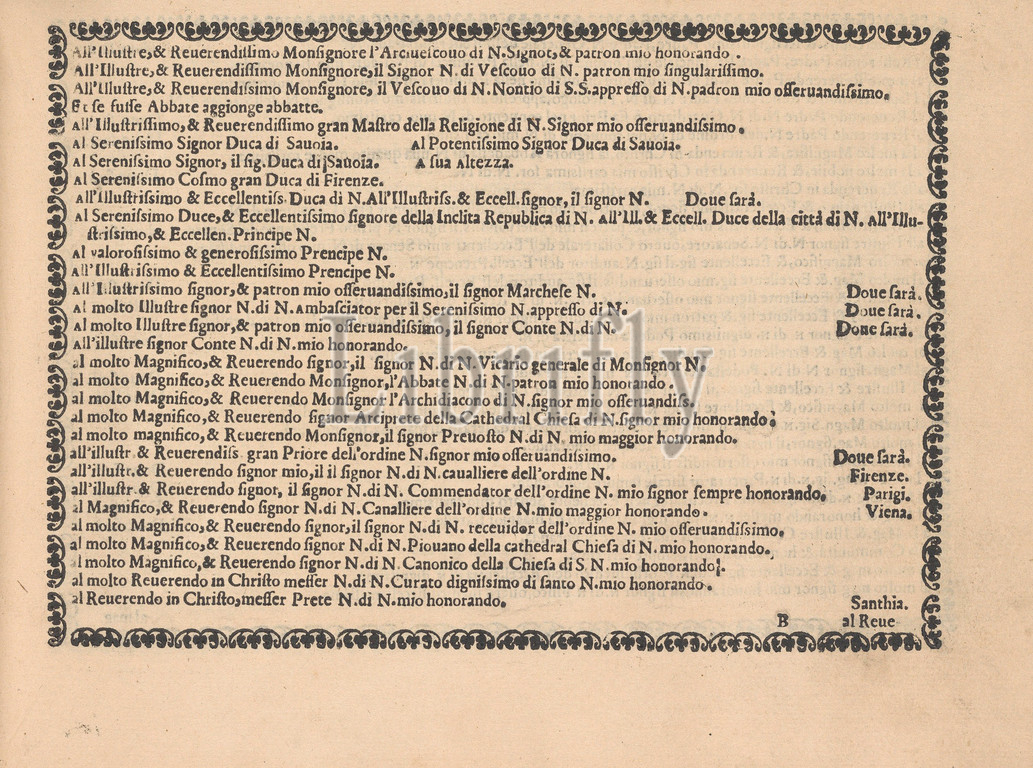 All'Illustre,& Reuerendissimo Monsignore l'Arciuescouo di N.Signor,& patron mio honorando .
All'Illustre,& Reuerendissimo Monsignore,il Signor N. di Vescouo di N. patron mio singularissimo.
All'Illustre,& Reuerendissimo Monsignore, il Vescouo di N.Nontio di S.S.appresso di N.padron mio osseruandissimo.
Et se fusse Abbate aggionge abbatte.
All'Illustrissimo,& Reuerendissimo gran Mastro della Religione di N.Signor mio osseruandissimo.
Al Serenissimo Signor Duca di Sauoia. Al Potentissimo Signor Duca di Sauoia.
Al Serenissimo Signor, il sig.Duca di Sauoia. A sua Altezza.
Al Serenissimo Cosmo gran Duca di Firenze.
All'Illustrissimo & Eccellentiss. Duca di N.All'Illustriss.& Eccell.signor, il signor N. Doue sarà.
Al Serenissimo Duce,& Eccellentissimo signore della Inclita Republica di N. All'Ill.& Eccell. Duce della città di N. All'Illu-
strissimo,& Eccellen.Principe N.
Al valorosissimo & generosissimo Prencipe N.
All'Illustrissimo & Eccellentissimo Prencipe N.
All'Illustrissimo signor,& patron mio osseruandissimo,il signor Marchese N. Doue sarà.
Al molto Illustre signor N.di N.Ambasciator per il Serenissimo N.appresso di N. Doue sarà.
Al molto Illustre signor,& patron mio osseruandissimo, il signor Conte N.di N. Doue sarà.
All'illustre signor Conte N.di N.mio honorando.
al molto Magnifico,& Reuerendo signor,il signor N.di N.Vicario generale di Monsignor N.
al molto Magnifico,& Reuerendo Monsignor,l'Abbate N.di N.patron mio honorando .
al molto Magnifico,& Reuerendo Monsignor l'Archidiacono di N.signor mio osseruandiss.
al molto Magnifico,& Reuerendo signor Arciprete della Cathedral Chiesa di N.signor mio honorando;
al molto magnifico,& Reuerendo Monsignor,il signor Preuosto N.di N. mio maggior honorando.
all'illustr & Reuerendiss. gran Priore dell'ordine N.signor mio osseruandissimo. Doue sarà.
all'illustr.& Reuerendo signor mio,il il signor N.di N.cauallìere dell'ordine N. Firenze.
all'illustr.& Reuerendo signor, il signor N.di N. Commendator dell'ordine N. mio signor sempre honorando. Parigi.
al Magnifico,& Reuerendo signor N.di N.Canalliere dell'ordine N.mio maggior honorando. Viena.
al molto Magnifico,& Reuerendo signor,il signor N.di N. receuidor dell'ordine N. mio osseruandissimo.
al molto Magnifico,& Reuerendo signor N.di N.Piouano della cathedral Chiesa di N.mio honorando.
al molto Magnifico,& Reuerendo signor N.di N.Canonico della Chiesa di S N.mio honorando.
al molto Reuerendo in Christo messer N.di N.Curato dignissimo di santo N.mio honorando .
al Reuerendo in Christo,messer Prete N.di N.mio honorando. Santhia.
B al Reue
Librifly